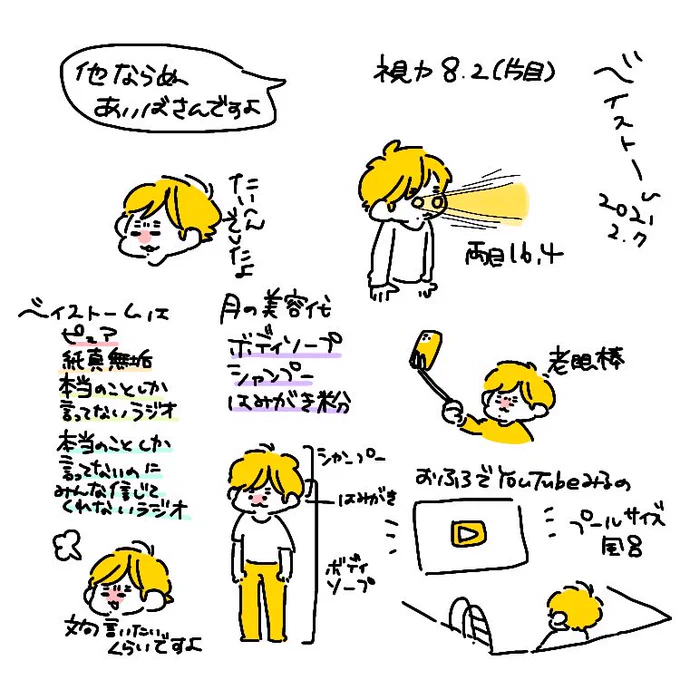 他ならぬ
あいばさんですよ
視力8.2(片目)
ベイストーム
2021
2.7
たいへん
でしたよ
両目16.4
ベイストームは
ピュア
純真無垢
本当のことしか
言ってないラジオ
本当のことしか
言ってないのに
みんな信じて
くれないラジオ
文句言いたい
くらいですよ
月の美容代
ボディソープ
シャンプー
はみがき粉
シャンプー
はみがき
ボディ
ソープ
老眼棒
おふろでYouTubeみるの
プールサイズ
風呂